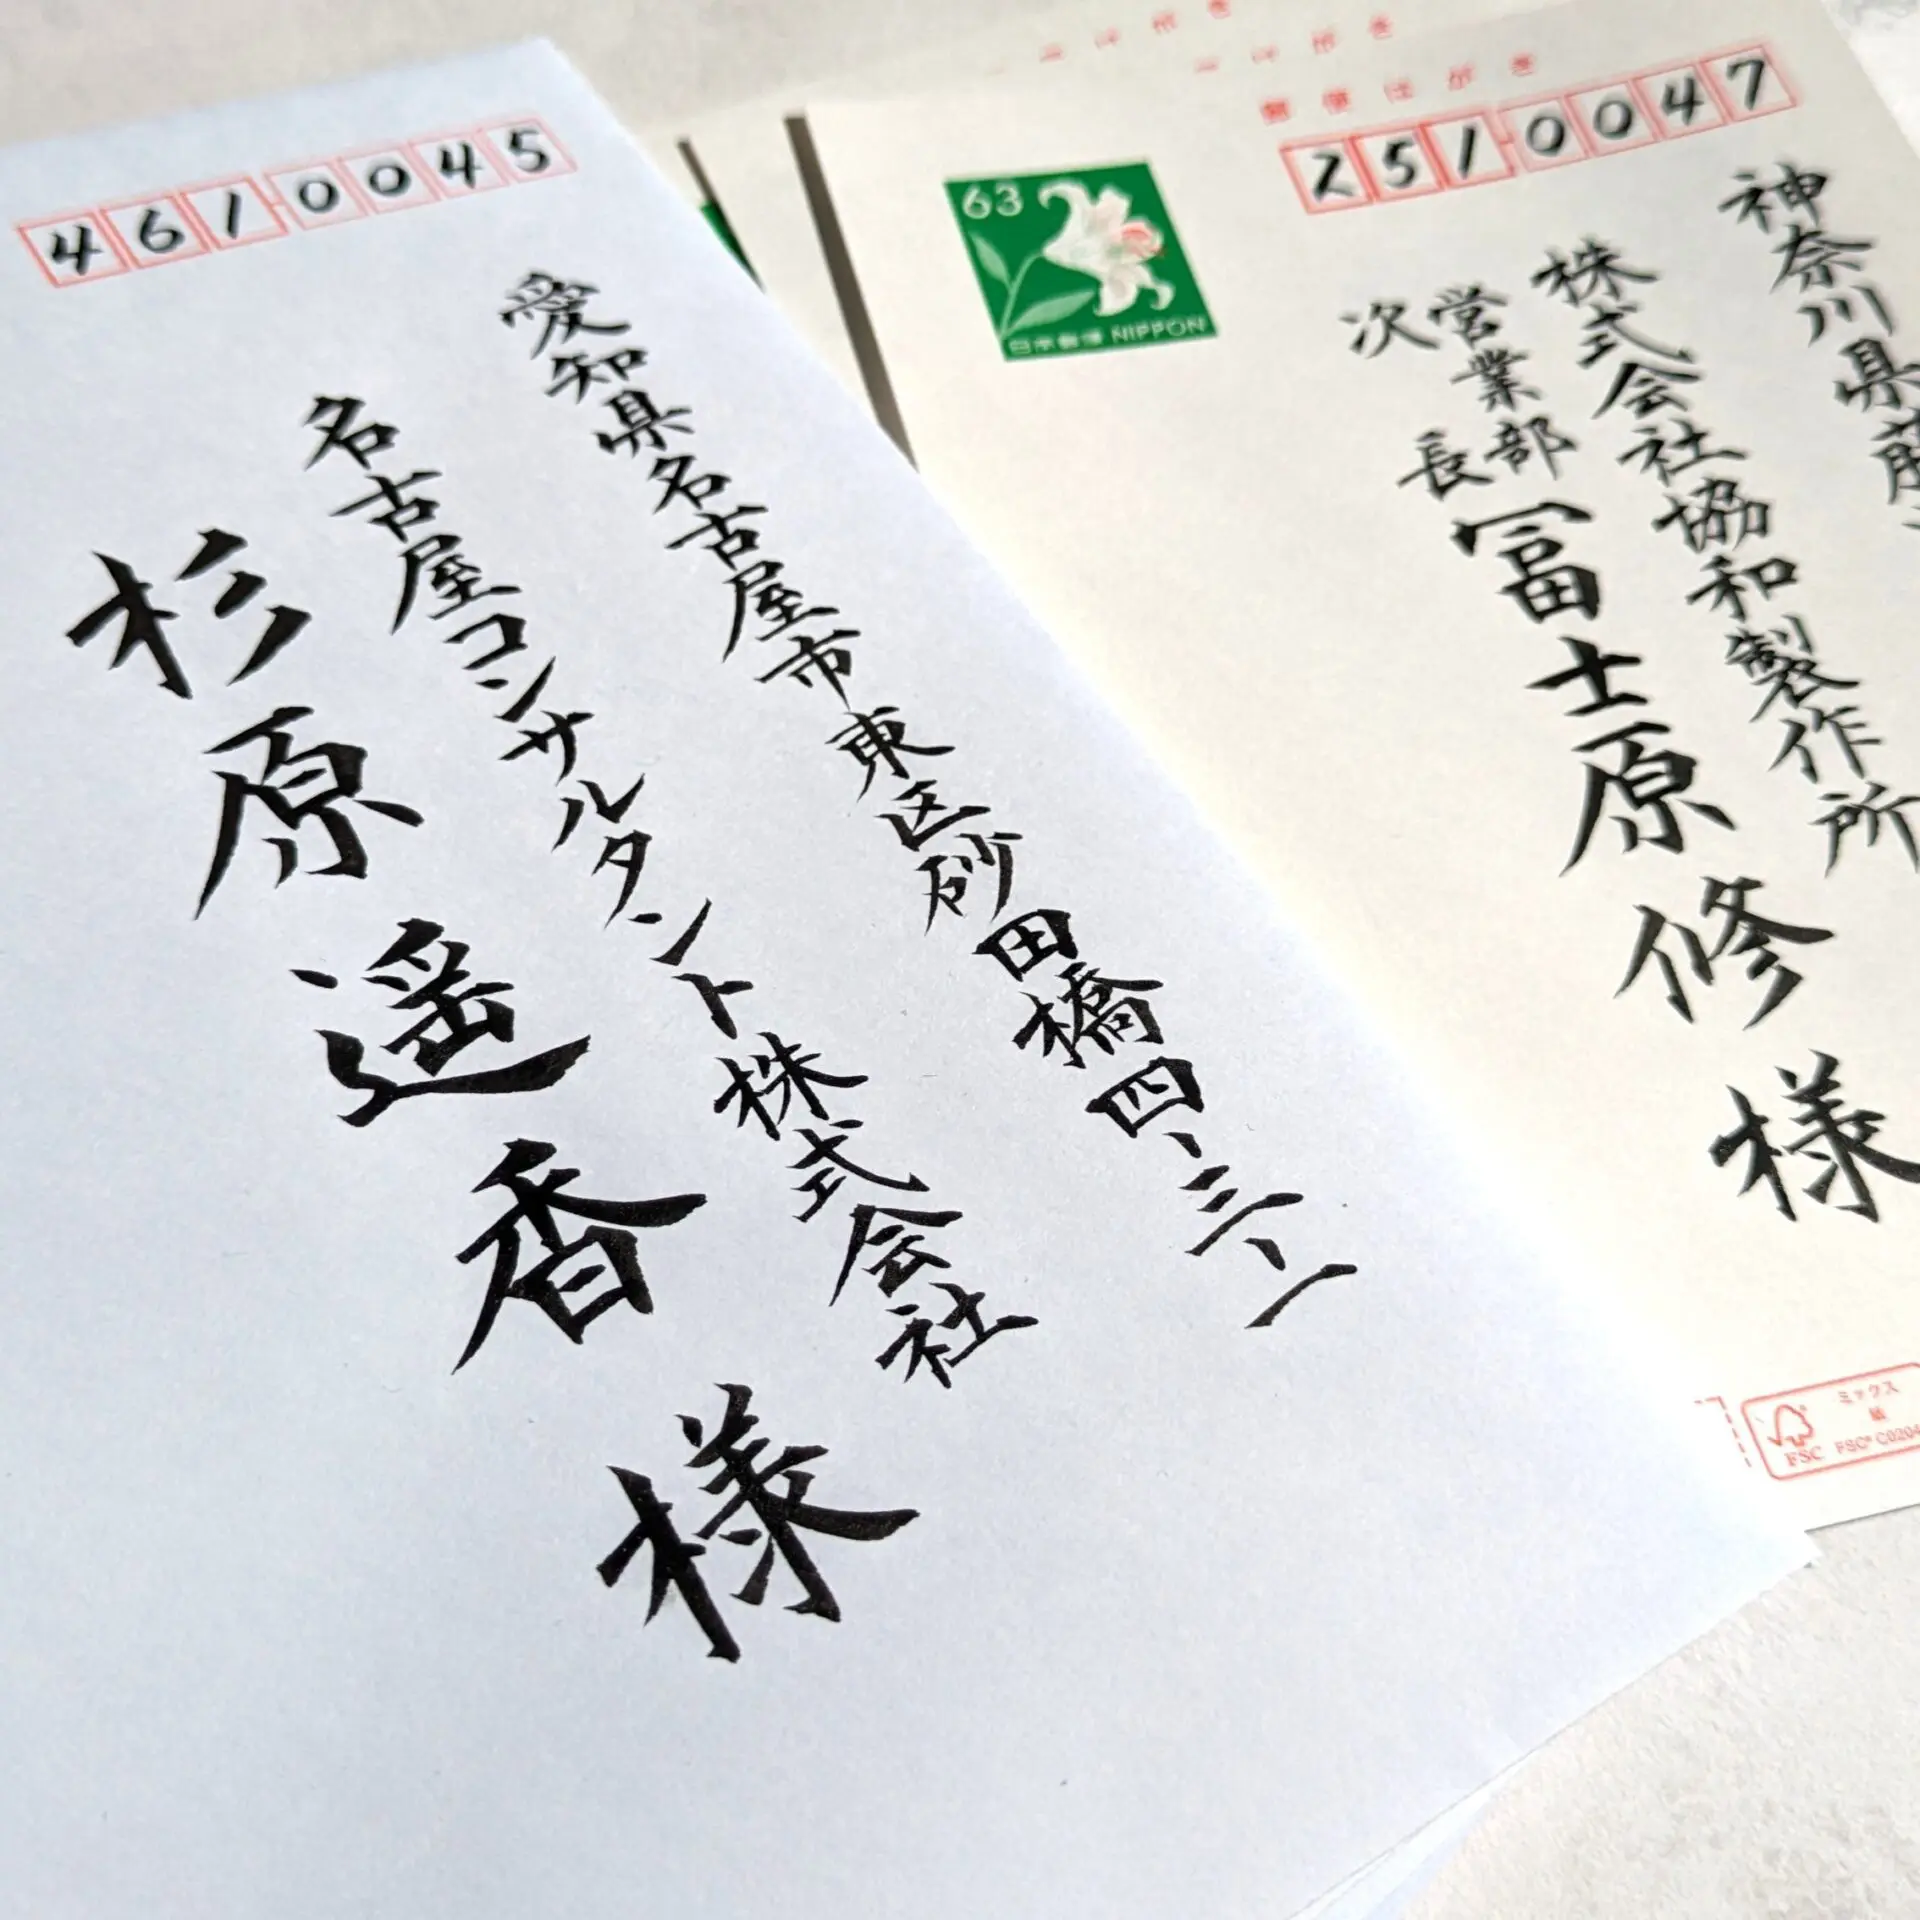 4610045
愛知県名古屋市東区砂田橋四、三、一
名古屋コンサルタント株式会社
杉原遥香様
郵便はがき
2510047
63
日本郵便 NIPPON
神奈川県藤
株式会社協和製作所
営業部
次長
冨士原修様
ミックス
紙
FSC
FSC® C0204